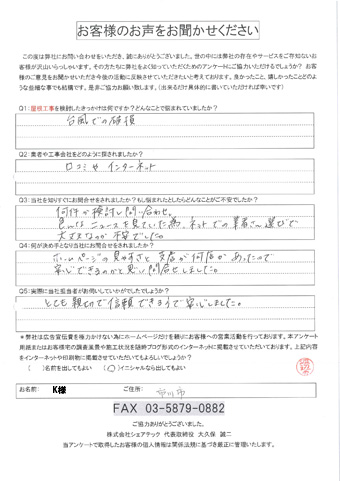 お客様のお声をお聞かせください
この度は弊社にお問い合わせをいただき、誠にありがとうございました。世の中には弊社の存在やサービスをご存知ないお
客様が沢山いらっしゃいます。その方たちに弊社をよく知っていただくためのアンケートにご協力いただけるでしょうか？ お客
様のご意見をお聞かせいただき今後の活動に反映させていただきたいと考えております。良かったこと、嬉しかったことどのよ
うな些細な事でも結構です。是非ご協力お願い致します。（出来るだけ具体的に書いていただければ幸いです）
Q1：屋根工事を検討したきっかけは何ですか？どんなことで悩まれていましたか？
台風での破損
Q2：業者や工事会社をどのように探されましたか？
口コミやインターネット
Q3：当社を知りすぐにお問合せをされましたか？もし悩まれたとしたらどんなことがご不安でしたか？
何件か検討し問い合わせ。
色んなニュースを見ていた為、ネットでの業者さん選びで
大丈夫なのか不安でした。
Q4：何が決め手となり当社にお問合せをされましたか？
ホームページの見やすさと支店が何店かあったので
安心できるのかと思い問合せしました。
Q5：実際に当社担当者がお伺いしていかがでしたでしょうか？
とても親切で信頼できそうで安心しました。
＊弊社は広告宣伝費を極力かけない為にホームページだけを頼りにお客様への営業活動を行っております。本アンケート
用紙またはお客様宅の調査風景や施工状況を随時ブログ形式のインターネットに掲載させていただいております。上記内容
をインターネットや印刷物に掲載させていただいてもよろしいでしょうか？
（　）名前を出してもよい （○）イニシャルなら出してもよい
お名前： K様 ご住所： 市川市
FAX 03-5879-0882
ご協力ありがとうございました。
株式会社シェアテック 代表取締役 大久保 誠二
当アンケートで取得したお客様の個人情報は関係法規に基づき厳正に管理いたします。